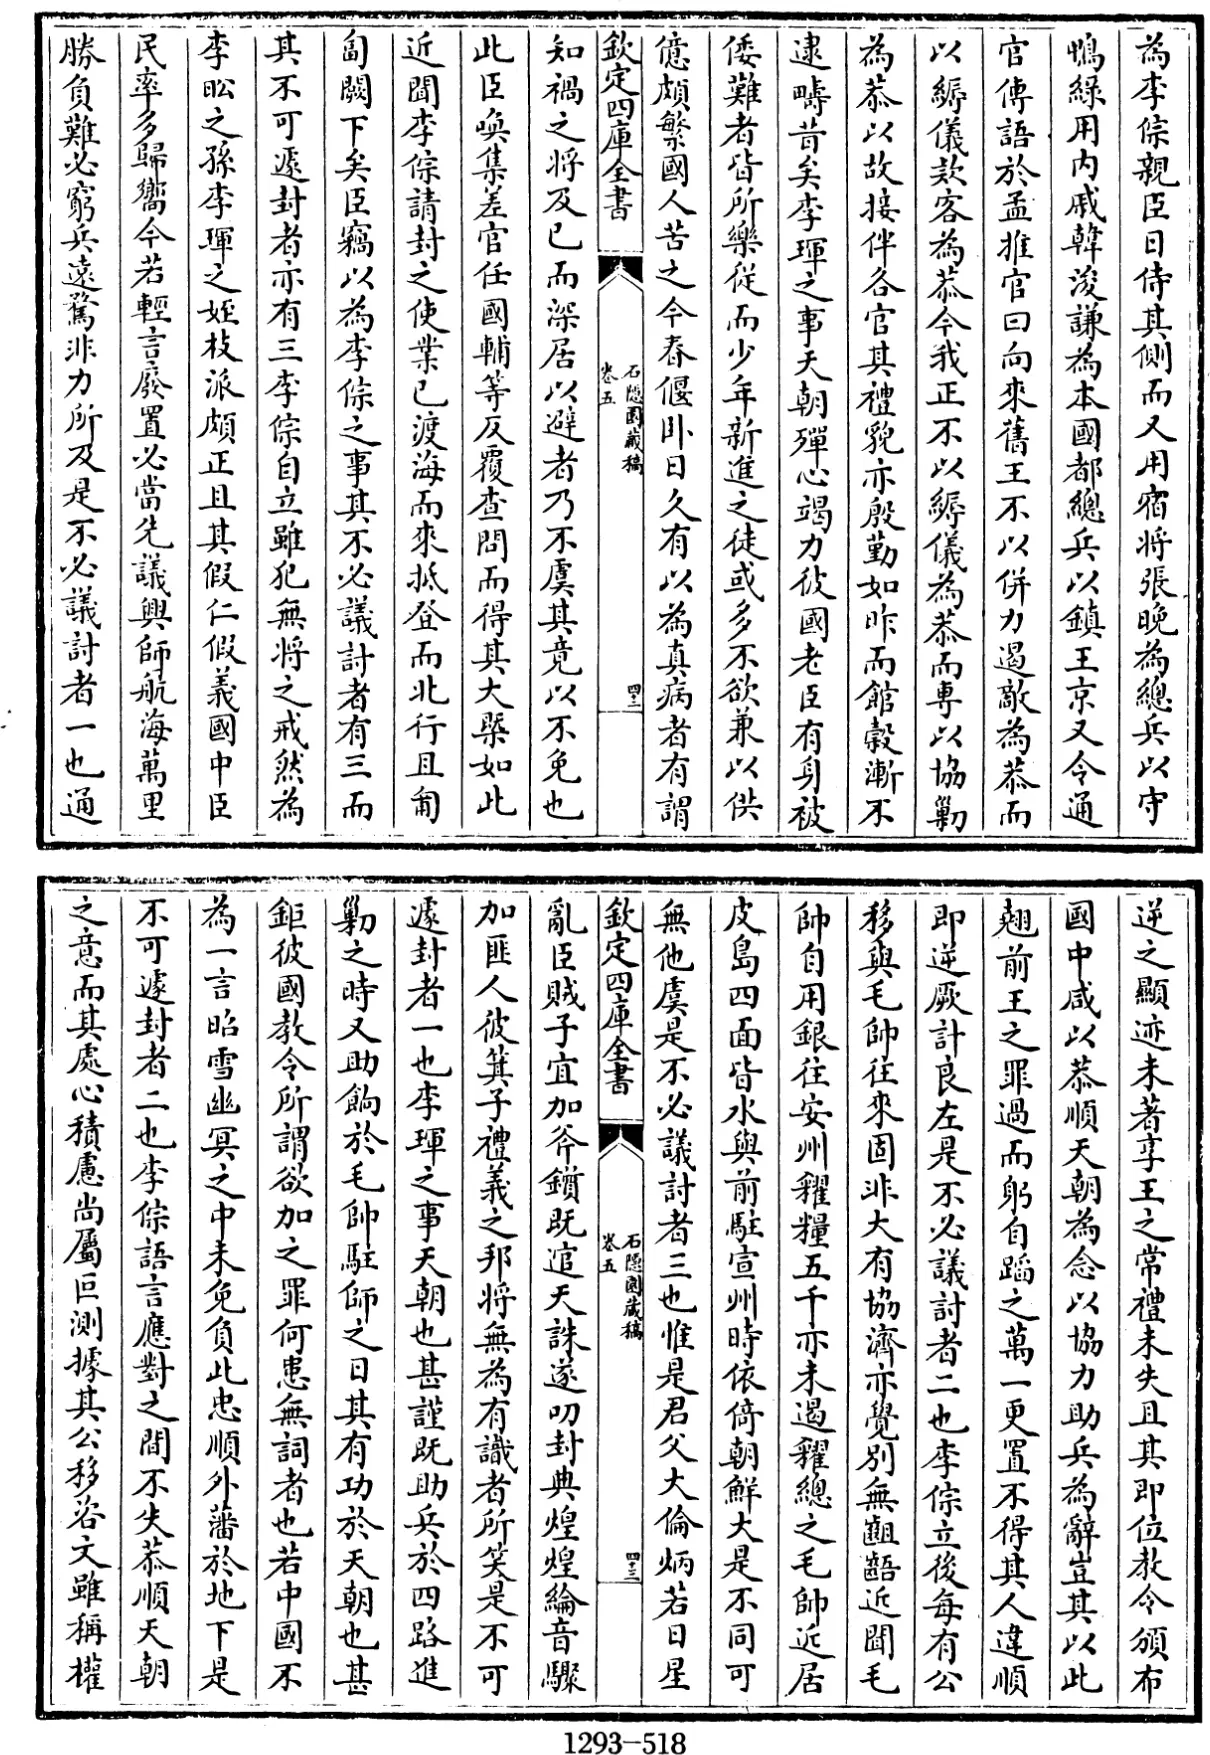 為李倧親臣日侍其側而又用宿將張晚為總兵以守
鴨綠用内戚韓浚謙為本國都總兵以鎮王京又令通
官傳語於孟推官曰向來舊王不以併力遏敵為恭而
以縟儀款客為恭今我正不以縟儀為恭而専以協勦
為恭以故接伴各官其禮貌亦殷勤如昨而館榖漸不
逮疇昔矣李琿之事天朝殫心竭力彼國老臣有身被
倭難者皆所樂從而少年新進之徒或多不欲兼以供
億頗繁國人苦之今春偃卧日久有以為真病者有謂
欽定四庫全書
石隱園藏稿
卷五
四十二
知禍之將及已而深居以避者乃不虞其竟以不免也
此臣喚集差官任國輔等反覆查問而得其大槩如此
近聞李倧請封之使業已渡海而來抵登而北行且匍
匐闕下矣臣竊以為李倧之事其不必議討者有三而
其不可遽封者亦有三李倧自立雖犯無將之戒然為
李昖之孫李琿之姪枝派頗正且其假仁假義國中臣
民率多歸嚮今若輕言廢置必當先議興師航海萬里
勝負難必窮兵遠騖非力所及是不必議討者一也通
逆之顯迹未著享王之常禮未失且其即位敎令頒布
國中咸以恭順天朝為念以協力助兵為辭豈其以此
翹前王之罪過而躬自蹈之萬一更置不得其人違順
即逆厥計良左是不必議討者二也李倧立後每有公
移與毛帥往來固非大有協濟亦覺別無齟齬近聞毛
帥自用銀往安州糴糧五千亦未遏糴總之毛帥近居
皮島四面皆水與前駐宣州時依倚朝鮮大是不同可
無他虞是不必議討者三也惟是君父大倫炳若日星
欽定四庫全書
石隱園藏稿
卷五
四十三
亂臣賊子宜加斧鑕既逭天誅遂叨封典煌煌綸音驟
加匪人彼箕子禮義之邦將無為有識者所笑是不可
遽封者一也李琿之事天朝也甚謹既助兵於四路進
勦之時又助餉於毛帥駐師之日其有功於天朝也甚
鉅彼國教令所謂欲加之罪何患無詞者也若中國不
為一言昭雪幽冥之中未免負此忠順外藩於地下是
不可遽封者二也李倧語言應對之間不失恭順天朝
之意而其處心積慮尚屬叵測據其公移咨文雖稱權
1293—518